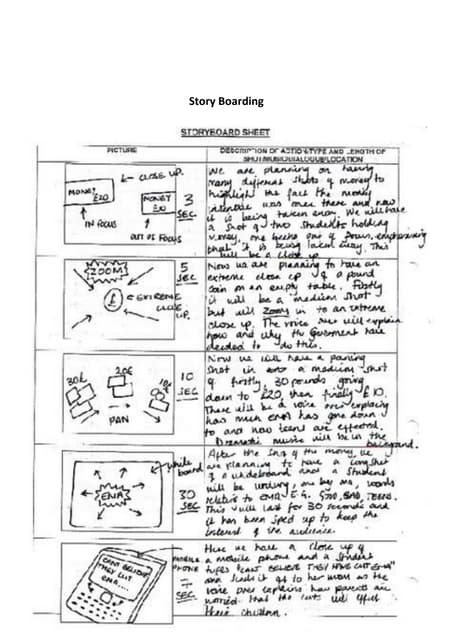 Story Boarding
STORYBOARD SHEET
PICTURE
DESCRIPTION OF ACTION/TYPE AND LENGTH OF
SHOT/MUSIC/DIALOGUE/LOCATION
CLOSE UP.
MONEY
£20
MONEY
IN FOCUS
OUT OF FOCUS
3
SEC
We are planning on having
many different shots of money to
highlight the fact the money
was once there and now
it is being taken away. We will have
a shot of two students holding
money, one being out of focus, emphasising
that it is being taken away. This
will be a close up
ZOOM
£
EXTREME
CLOSE
UP.
5
SEC
Now we are planning to have an
extreme close up of a pound
coin on an empty table. Firstly
it will be a medium shot
but will zoom in to an extreme
close up. The voice over will explain
how and why the Government have
decided to do this.
30£
20£
10£
PAN
10
SEC
Now we will have a panning
shot in a medium shot
of firstly, 30 pounds going
down to £20, then finally £10.
There will be a voice over explaining
how much EMA has gone down
to and how teens are effected.
Dramatic music will be in the
background.
EMA
white
board
30
SEC
After the shot of the money, we
are planning to have a long shot
of a whiteboard and a student
will be writing, one by one, words
relative to EMA E.G.
This will last for 30 seconds and
it has been sped up to keep the
interest of the audience.
CANT BELIEVE
THEY CUT
EMA
MOBILE
PHONE
SEC
Here we have a close up of
a mobile phone and a student
types "CANT BELIEVE THEY HAVE CUT EMA"
and sends it off to her mum as the
voice over explains how parents are
worried that the cuts will effect
their children.